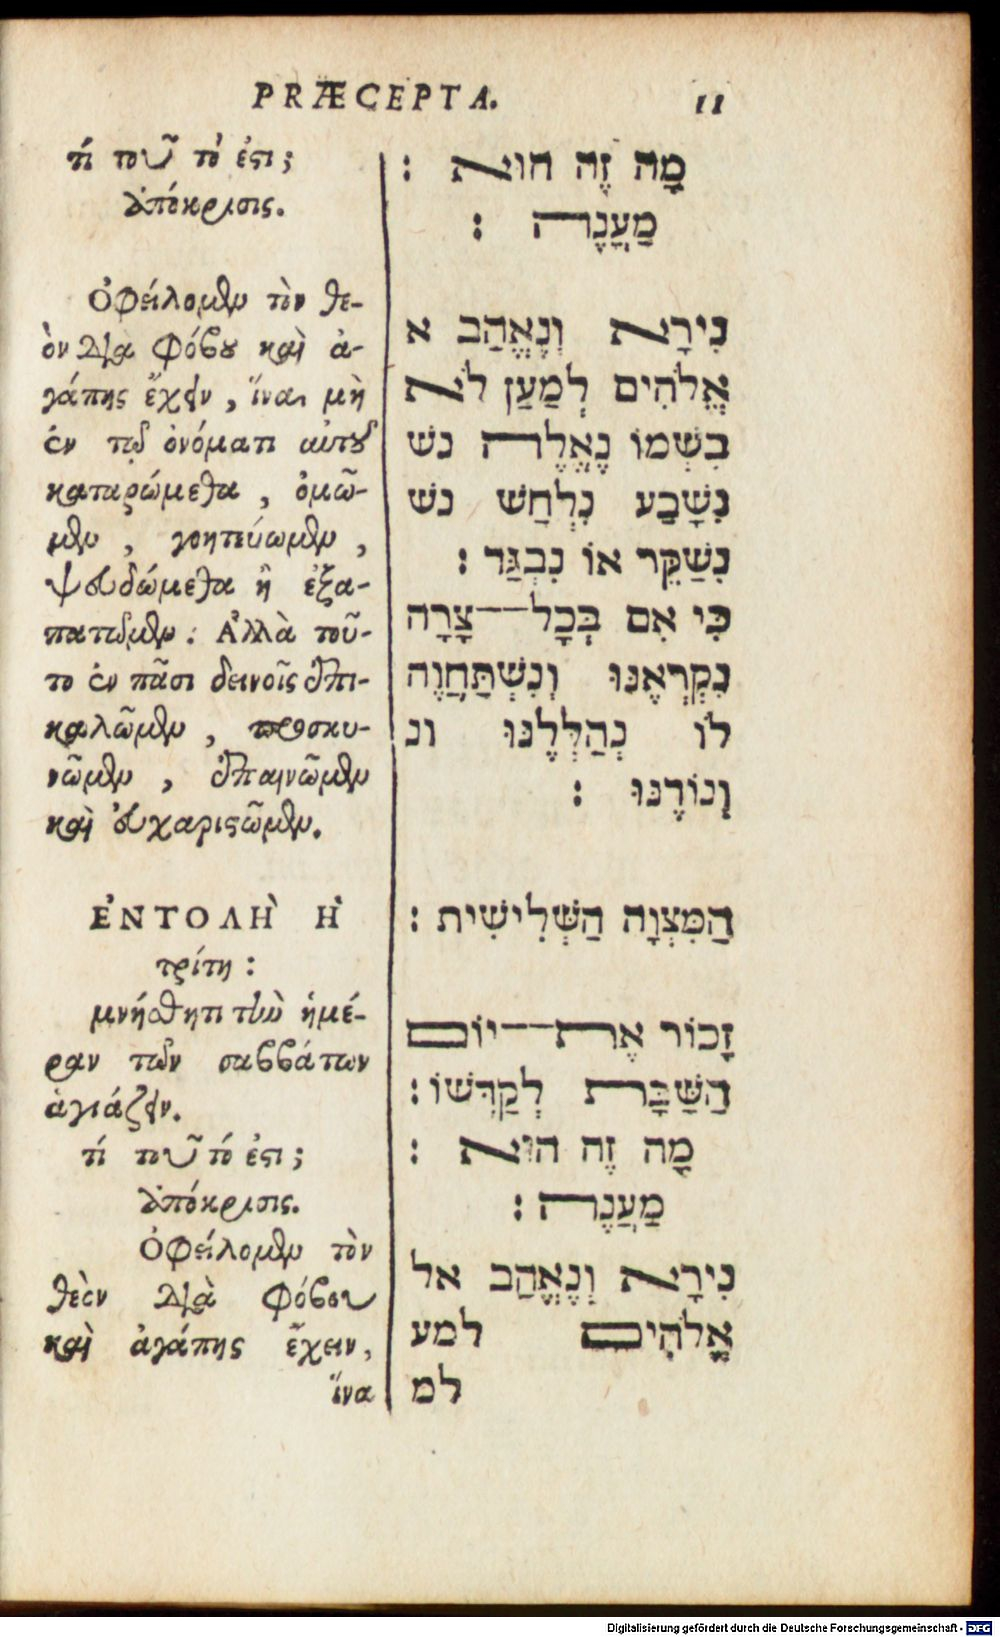 PRÆCEPTA. 11
τί τοῦ τό ἐστι;
ἀπόκρισις.
Ὀφείλομεν τὸν θε-
ὸν διὰ φόβου καὶ ἀ-
γάπης ἔχειν, ἵνα μὴ
ἐν τῷ ὀνόματι αὐτοῦ
καταρώμεθα, ὀμῶ-
μεν, γοητεύωμεν,
ψευδώμεθα ἢ ἐξα-
πατῶμεν. Ἀλλὰ τοῦ-
το ἐν πᾶσι δεινοῖς ἐπι-
καλῶμεν, προσκυ-
νῶμεν, ἐπαινῶμεν
καὶ εὐχαριστῶμεν.
ἘΝΤΟΛῊ Ἡ
τρίτη:
μνήσθητι τὴν ἡμέ-
ραν τῶν σαββάτων
ἁγιάζειν.
τί τοῦ τό ἐστι;
ἀπόκρισις.
Ὀφείλομεν τὸν
θεὸν διὰ φόβου
καὶ ἀγάπης ἔχειν,
ἵνα
מָה זֶה הוּא :
מַעֲנֶה :
נִירָא וְנֶאֱהַב א
אֱלֹהִים לְמַעַן לֹא
בִשְׁמוֹ נֶאֱלֶה נש
נִשָׁבַע נִלְחַשׁ נש
נִשַׁקֵּר אוֹ נִבְגַּד :
כִּי אִם בְּכָל־־צָרָה
נִקְרְאֶנּוּ וְנִשְׁתַּחֲוֶה
לוֹ נְהַלְּלֶנּוּ ונ
וְנוֹדֶנּוּ :
הַמִּצְוָה הַשְּׁלִישִׁית :
זָכוֹר אֶת־־יוֹם
הַשַּׁבָּת לְקַדְּשׁוֹ :
מָה זֶה הוּא :
מַעֲנֶה :
נִירָא וְנֶאֱהַב אל
אֱלֹהִים למע
למ
Digitalisierung gefördert durch die Deutsche Forschungsgemeinschaft - DFG